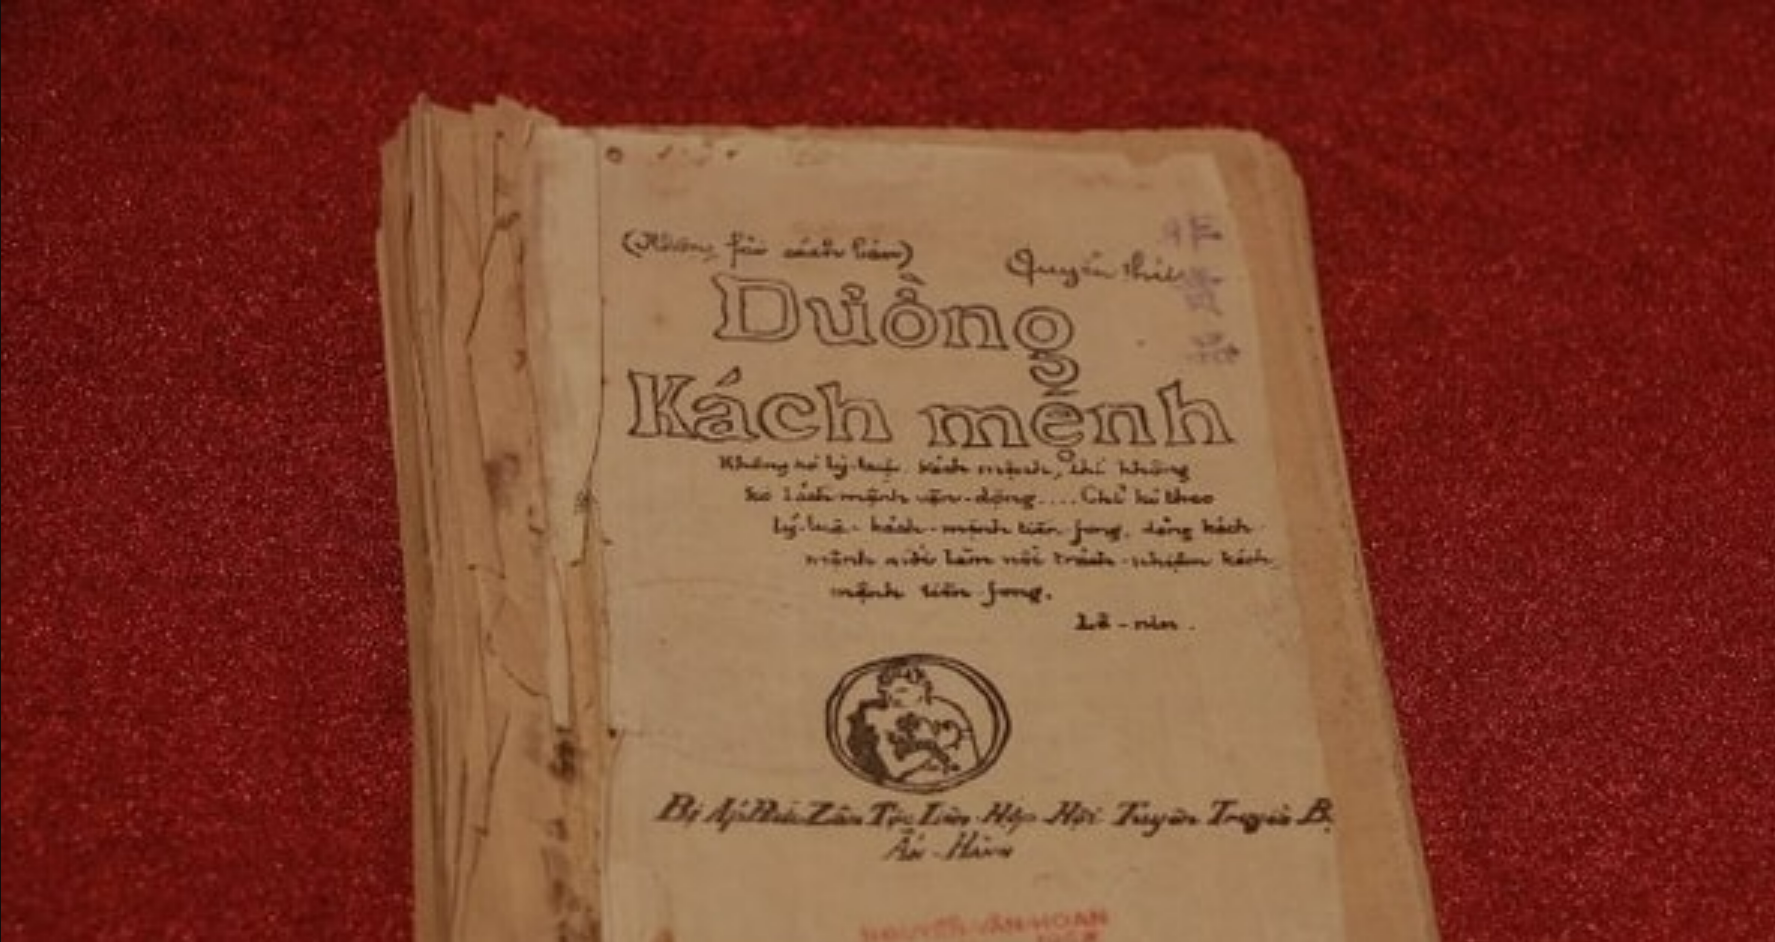 (Không fải sách bán)
Quyển thứ
非
賣
品
Đường
Kách mệnh
Không có lý-luận kách mệnh, thì không
có kách mệnh vận-động.... Chỉ có theo
lý-luận kách-mệnh tiền fong, đảng kách
mệnh mới làm nổi trách-nhiệm kách
mệnh tiền fong.
Lê-nin.
Bị Áp Bức Zân Tộc Liên Hợp Hội Tuyên Truyền Bộ
Ấn-Hành
NGUYỄN-VĂN-HOAN